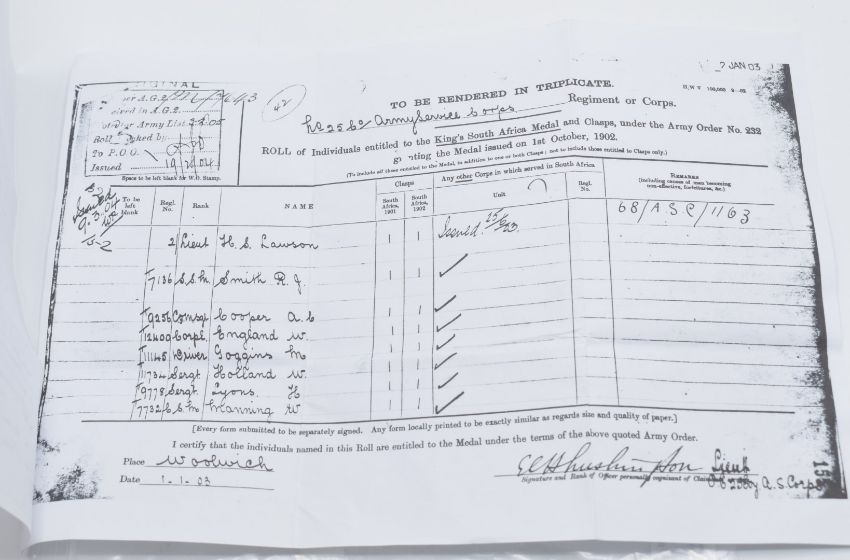 7 JAN 03
TO BE RENDERED IN TRIPLICATE.
Army Service Corps Regiment or Corps.
ROLL of Individuals entitled to the King's South Africa Medal and Clasps, under the Army Order No. 232
granting the Medal issued on 1st October, 1902.
(To include all those entitled to the Medal, in addition to one or both Clasps; not to include those entitled to Clasps only.)
Army List
Roll
To P.O.O.
Issued 19
Space to be left blank for W.O. Stamp.
Issued
9.3.04
To be left blank
Regl. No.
Rank
NAME
Clasps
South Africa, 1901
South Africa, 1902
Any other Corps in which served in South Africa
Unit
Regl. No.
REMARKS
(including causes of men becoming non-effective, forfeitures, &c.)
68/ASC/1163
2 Lieut H. S. Lawson 1 1 Issued
T7136 S.S.M. Smith R. J. 1 1 ✓
T9256 Smith Cooper A. C 1 1 ✓
T12400 Corpl England W. 1 1 ✓
T11145 Driver Goggins M 1 1 ✓
T11734 Sergt Holland W. 1 1 ✓
T9778 Sergt Lyons. H 1 1 ✓
T7732 C.S.M Manning W 1 1 ✓
[Every form submitted to be separately signed. Any form locally printed to be exactly similar as regards size and quality of paper.]
I certify that the individuals named in this Roll are entitled to the Medal under the terms of the above quoted Army Order.
Place Woolwich
Date 1.1.03
Lieut
Signature and Rank of Officer personally cognizant of
A.S. Corps